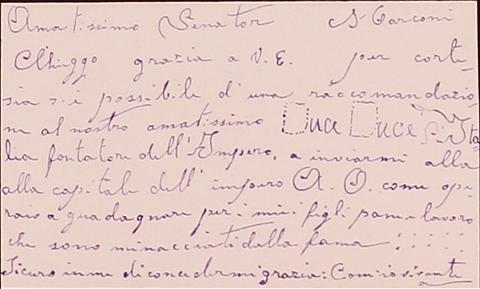 Amatissimo Senator S Carconi
Chieggo grazia a V. E. per corte-
sia s.i è possibile d'una raccomandazio-
ne al nostro amatissimo Duce Duce d'Ita
lia fontatore dell'Impero, a inviarmi alla
alla capitale dell'impero A. O. come ope
raio a guadagnare per i miei figli pane lavoro
che sono minacciati dalla fama : : : : :
Sicuro in me di concedermi grazia: